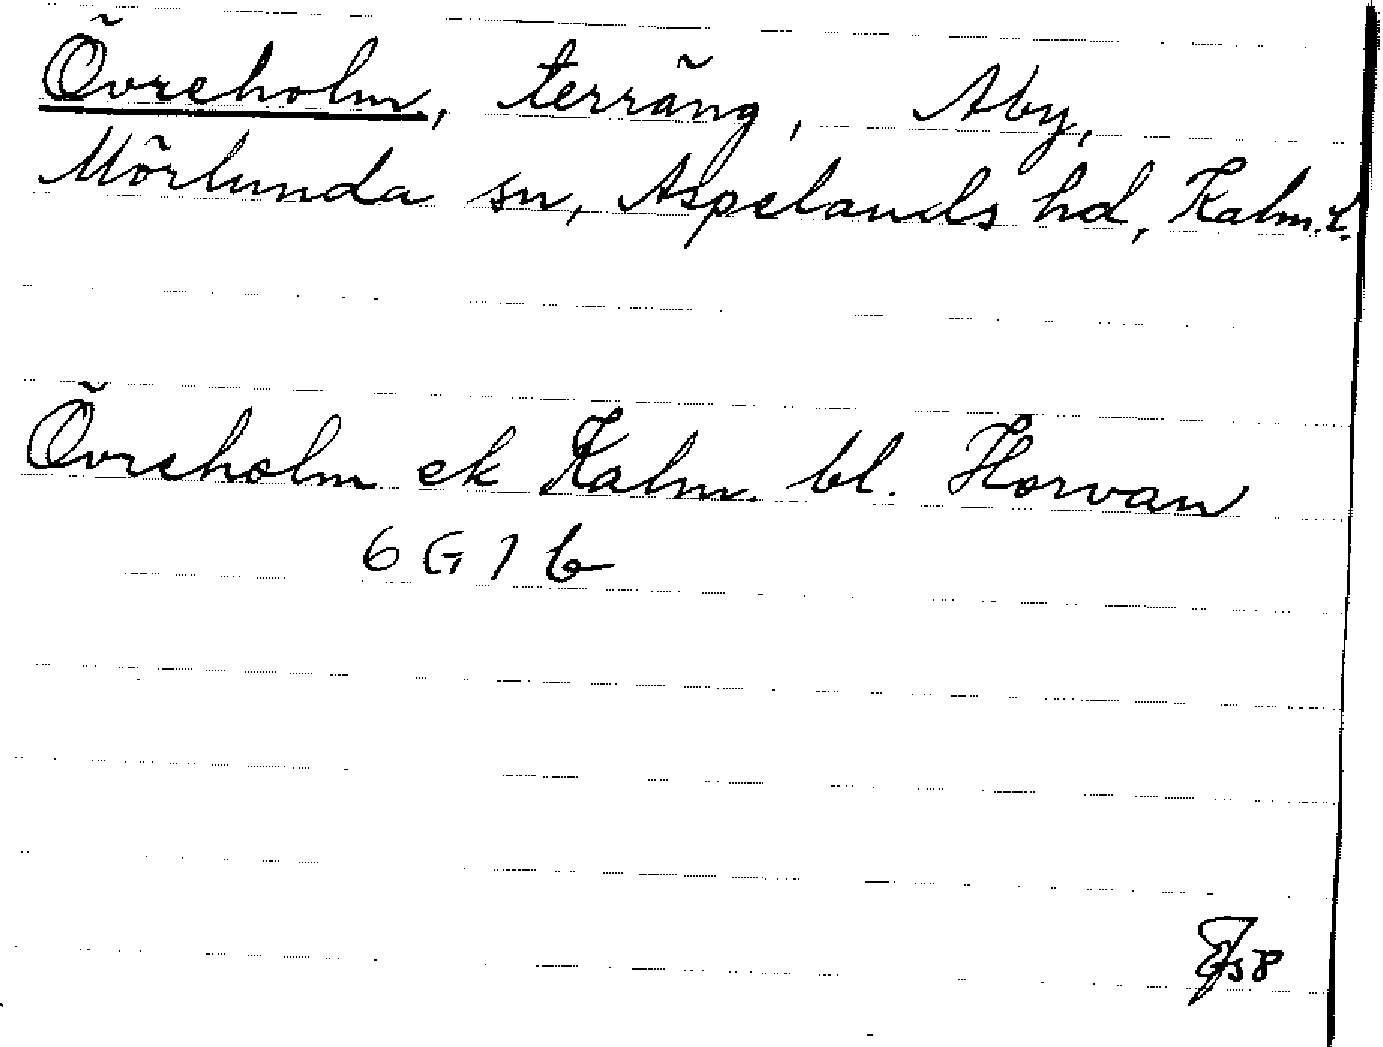 Övreholm, terräng, Åby,
Mörlunda sn, Aspelands hd, Kalm. L.
Övreholm ek Kalm. bl. Horvan
6 G 1 b
58